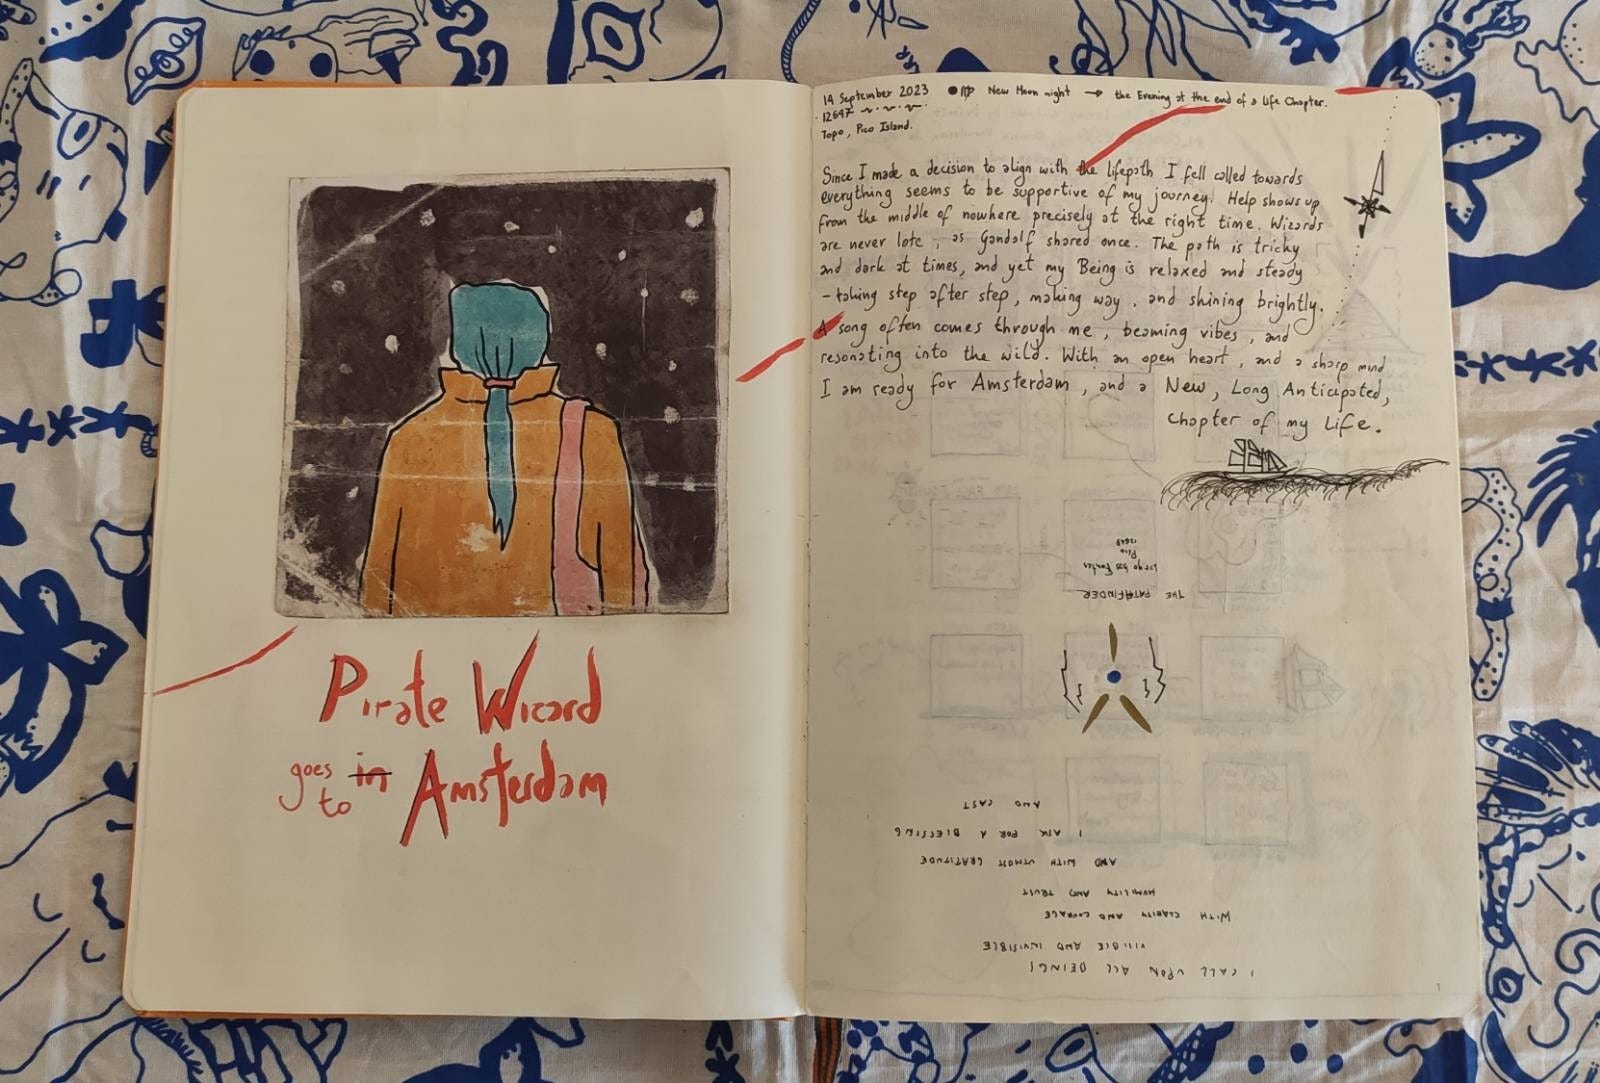 Pirate Wizard
goes in Amsterdam
to
14 September 2023 New Moon night → the Evening at the end of a Life Chapter.
12647
Topo, Pico Island.
Since I made a decision to align with the lifepath I fell called towards
everything seems to be supportive of my journey. Help shows up
from the middle of nowhere precisely at the right time. Wizards
are never late, as Gandalf shared once. The path is tricky
and dark at times, and yet my Being is relaxed and steady
- taking step after step, making way, and shining brightly.
A song often comes through me, beaming vibes, and
resonating into the wild. With an open heart, and a sharp mind
I am ready for Amsterdam, and a New, Long Anticipated,
Chapter of my Life.
I CALL UPON ALL BEINGS
VISIBLE AND INVISIBLE
WITH CLARITY AND COURAGE
HUMILITY AND TRUST
AND WITH UTMOST GRATITUDE
I ASK FOR A BLESSING
AND CAST
THE PATHFINDER
Pico
12648